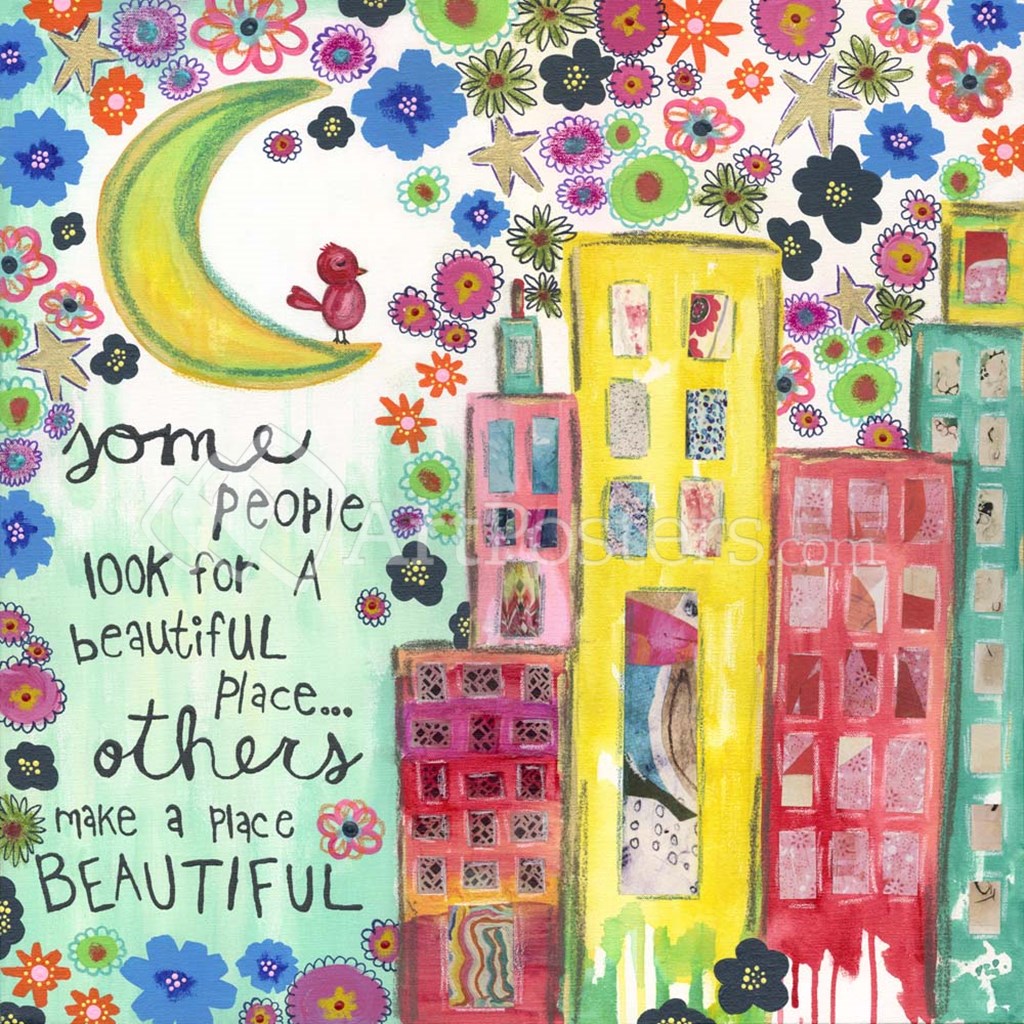 some
people
look for A
beautiful
place...
others
make a place
BEAUTIFUL
ArtPosters.com